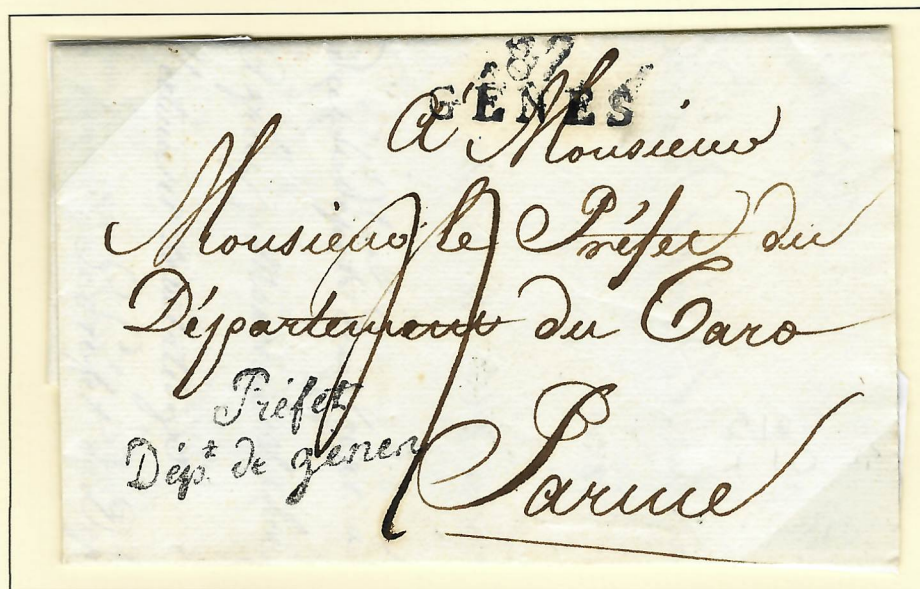 87
GÊNES
A Monsieur
Monsieur le Préfet du
Département du Taro
Préfet
Dépt. de genes
Parme